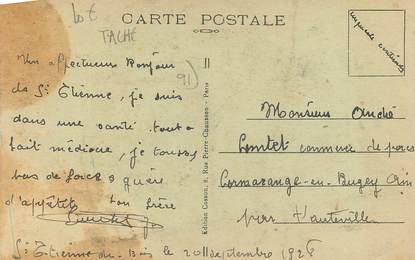 lot
TACHÉ
CARTE POSTALE
91
Un affectueux Bonjour
de St Étienne, je suis
dans une santé tout a
fait médiocre, je tousse
pas de force & guère
d'appétit ton frère
Edition Cosson, 8, Rue Pierre-Chausson - Paris
Monsieur André
commerce de porcs
Cormaranche-en-Bugey Ain
par Hauteville
St Etienne du Bois le 20 septembre 1928